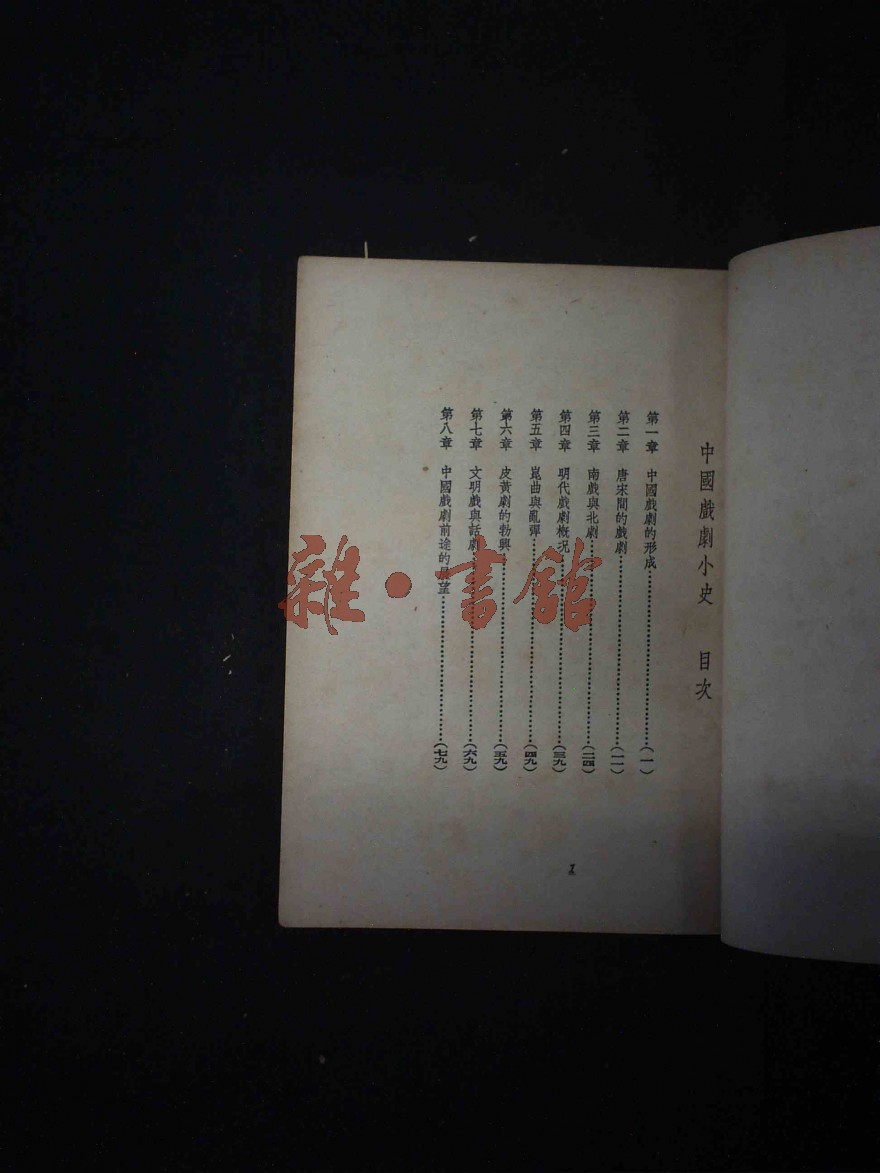 中國戲劇小史 目次
第一章 中國戲劇的形成…………(一)
第二章 唐宋間的戲劇…………(一一)
第三章 南戲與北劇…………(二四)
第四章 明代戲劇概況…………(三九)
第五章 崑曲與亂彈…………(四九)
第六章 皮黃劇的勃興…………(五九)
第七章 文明戲與話劇…………(六九)
第八章 中國戲劇前途的展望…………(七九)
1
雜·書館